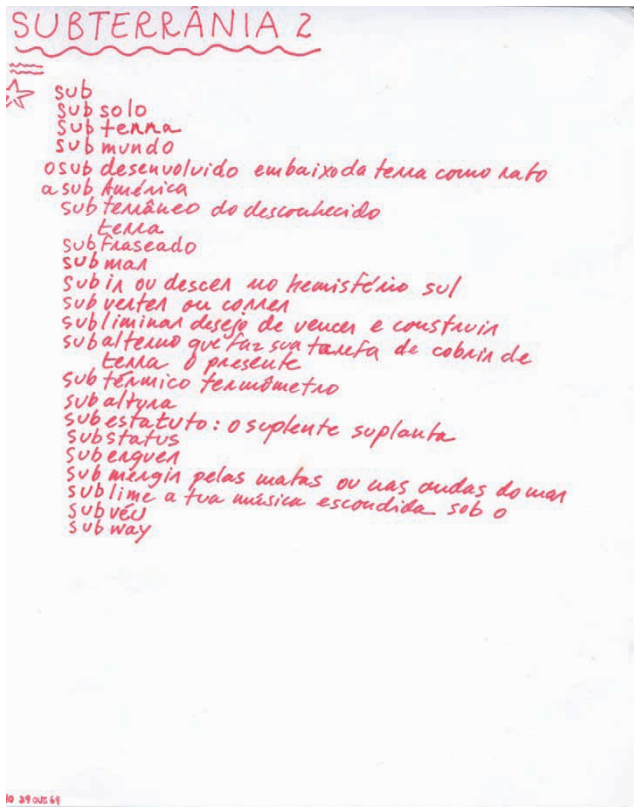 SUBTERRÂNIA 2
sub
sub solo
sub terra
sub mundo
o sub desenvolvido embaixo da terra como rato
a sub América
sub terrâneo do desconhecido
terra
sub fraseado
sub mar
sub ir ou descer no hemisfério sul
sub verter ou correr
sub liminar desejo de vencer e construir
sub alterno que faz sua tarefa de cobrir de
terra o presente
sub térmico termômetro
sub altura
sub estatuto: o suplente suplanta
sub status
sub erguer
sub mergir pelas matas ou nas ondas do mar
sub lime a tua música escondida sob o
sub véu
sub way
29 out 69